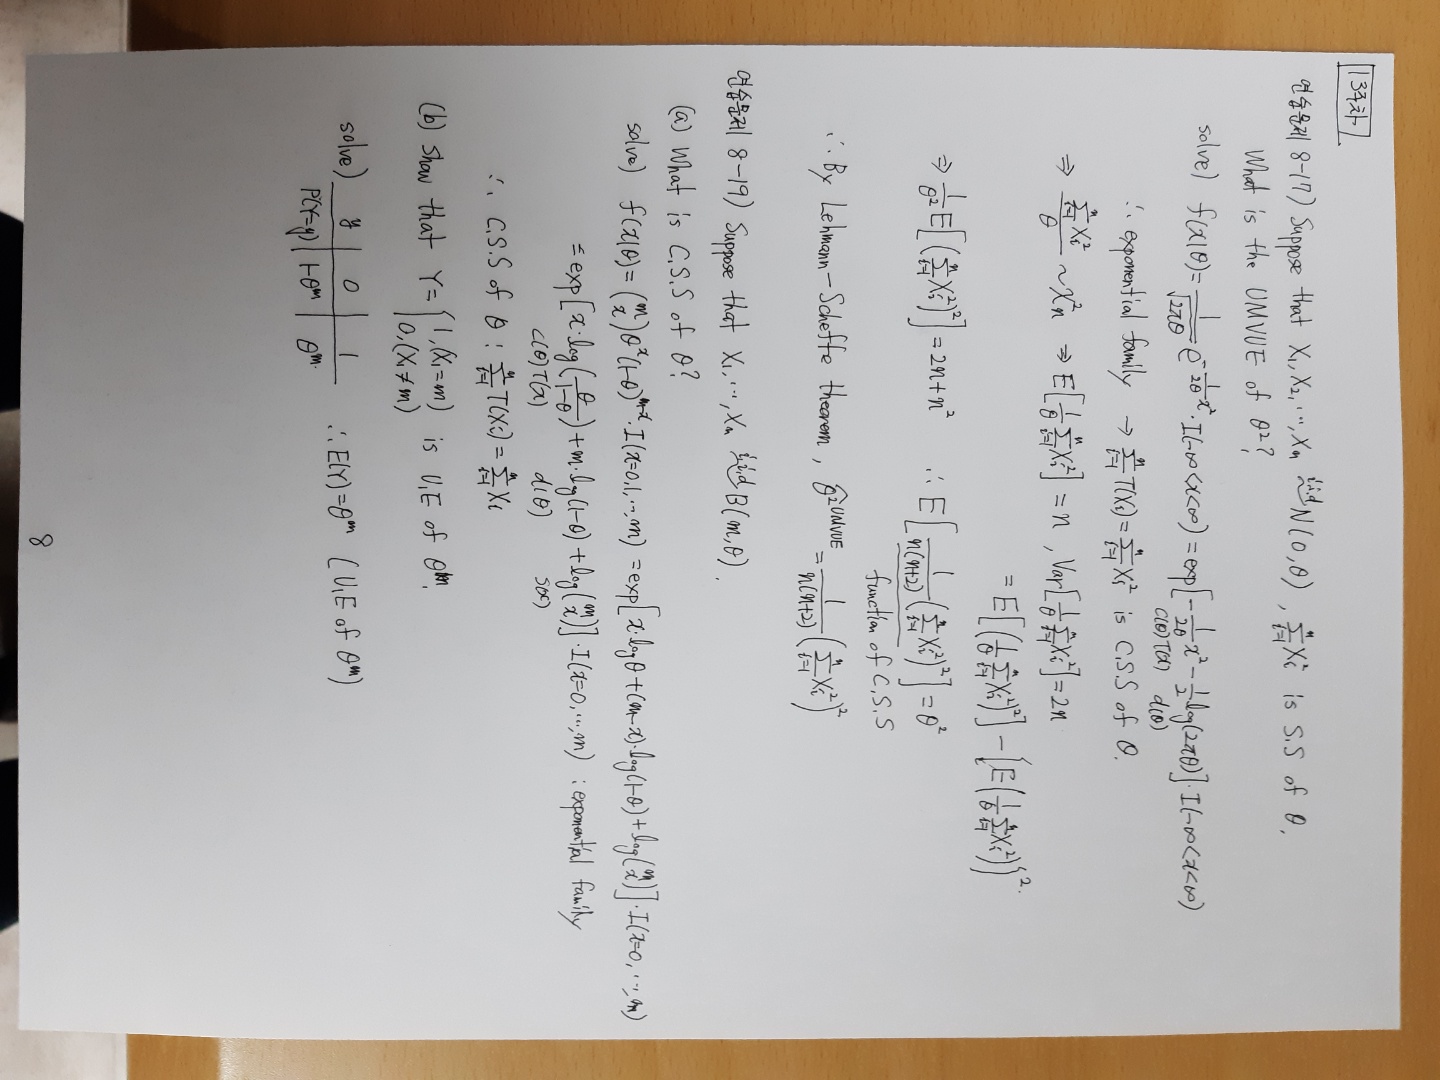 13주차
연습문제 8-17) Suppose that X₁, X₂, ⋯, Xₙ i.i.d ~ N(0, θ), Σᵢ₌₁ⁿ Xᵢ² is S.S of θ.
What is the UMVUE of θ²?
solve) f(x|θ) = 1/√(2πθ) e^(-1/(2θ) x²) · I(-∞<x<∞) = exp[-1/(2θ) x² - 1/2 log(2πθ)] · I(-∞<x<∞)
c(θ) T(x) d(θ)
∴ exponential family → Σᵢ₌₁ⁿ T(Xᵢ) = Σᵢ₌₁ⁿ Xᵢ² is C.S.S of θ.
⇒ Σᵢ₌₁ⁿ Xᵢ² / θ ~ χ²ₙ ⇒ E[1/θ Σᵢ₌₁ⁿ Xᵢ²] = n, Var[1/θ Σᵢ₌₁ⁿ Xᵢ²] = 2n
= E[(1/θ Σᵢ₌₁ⁿ Xᵢ²)²] - {E(1/θ Σᵢ₌₁ⁿ Xᵢ²)}².
⇒ 1/θ² E[(Σᵢ₌₁ⁿ Xᵢ²)²] = 2n + n² ∴ E[1/(n(n+2)) (Σᵢ₌₁ⁿ Xᵢ²)²] = θ²
function of C.S.S
∴ By Lehmann-Scheffe theorem, θ̂² ᵁᴹⱽᵁᴱ = 1/(n(n+2)) (Σᵢ₌₁ⁿ Xᵢ²)²
연습문제 8-19) Suppose that X₁, ⋯, Xₙ i.i.d ~ B(m, θ).
(a) What is C.S.S of θ?
solve) f(x|θ) = (m x) θˣ (1-θ)^(m-x) · I(x=0,1,⋯,m) = exp[x·logθ + (m-x)·log(1-θ) + log(m x)] · I(x=0,⋯,m)
= exp[x·log(θ/(1-θ)) + m·log(1-θ) + log(m x)] · I(x=0,⋯,m) : exponential family
c(θ) T(x) d(θ) S(x)
∴ C.S.S of θ : Σᵢ₌₁ⁿ T(Xᵢ) = Σᵢ₌₁ⁿ Xᵢ
(b) Show that Y = { 1, (X₁=m) is U.E of θᵐ.
0, (X₁≠m)
solve) y 0 1
P(Y=y) 1-θᵐ θᵐ. ∴ E(Y) = θᵐ (U.E of θᵐ)
8